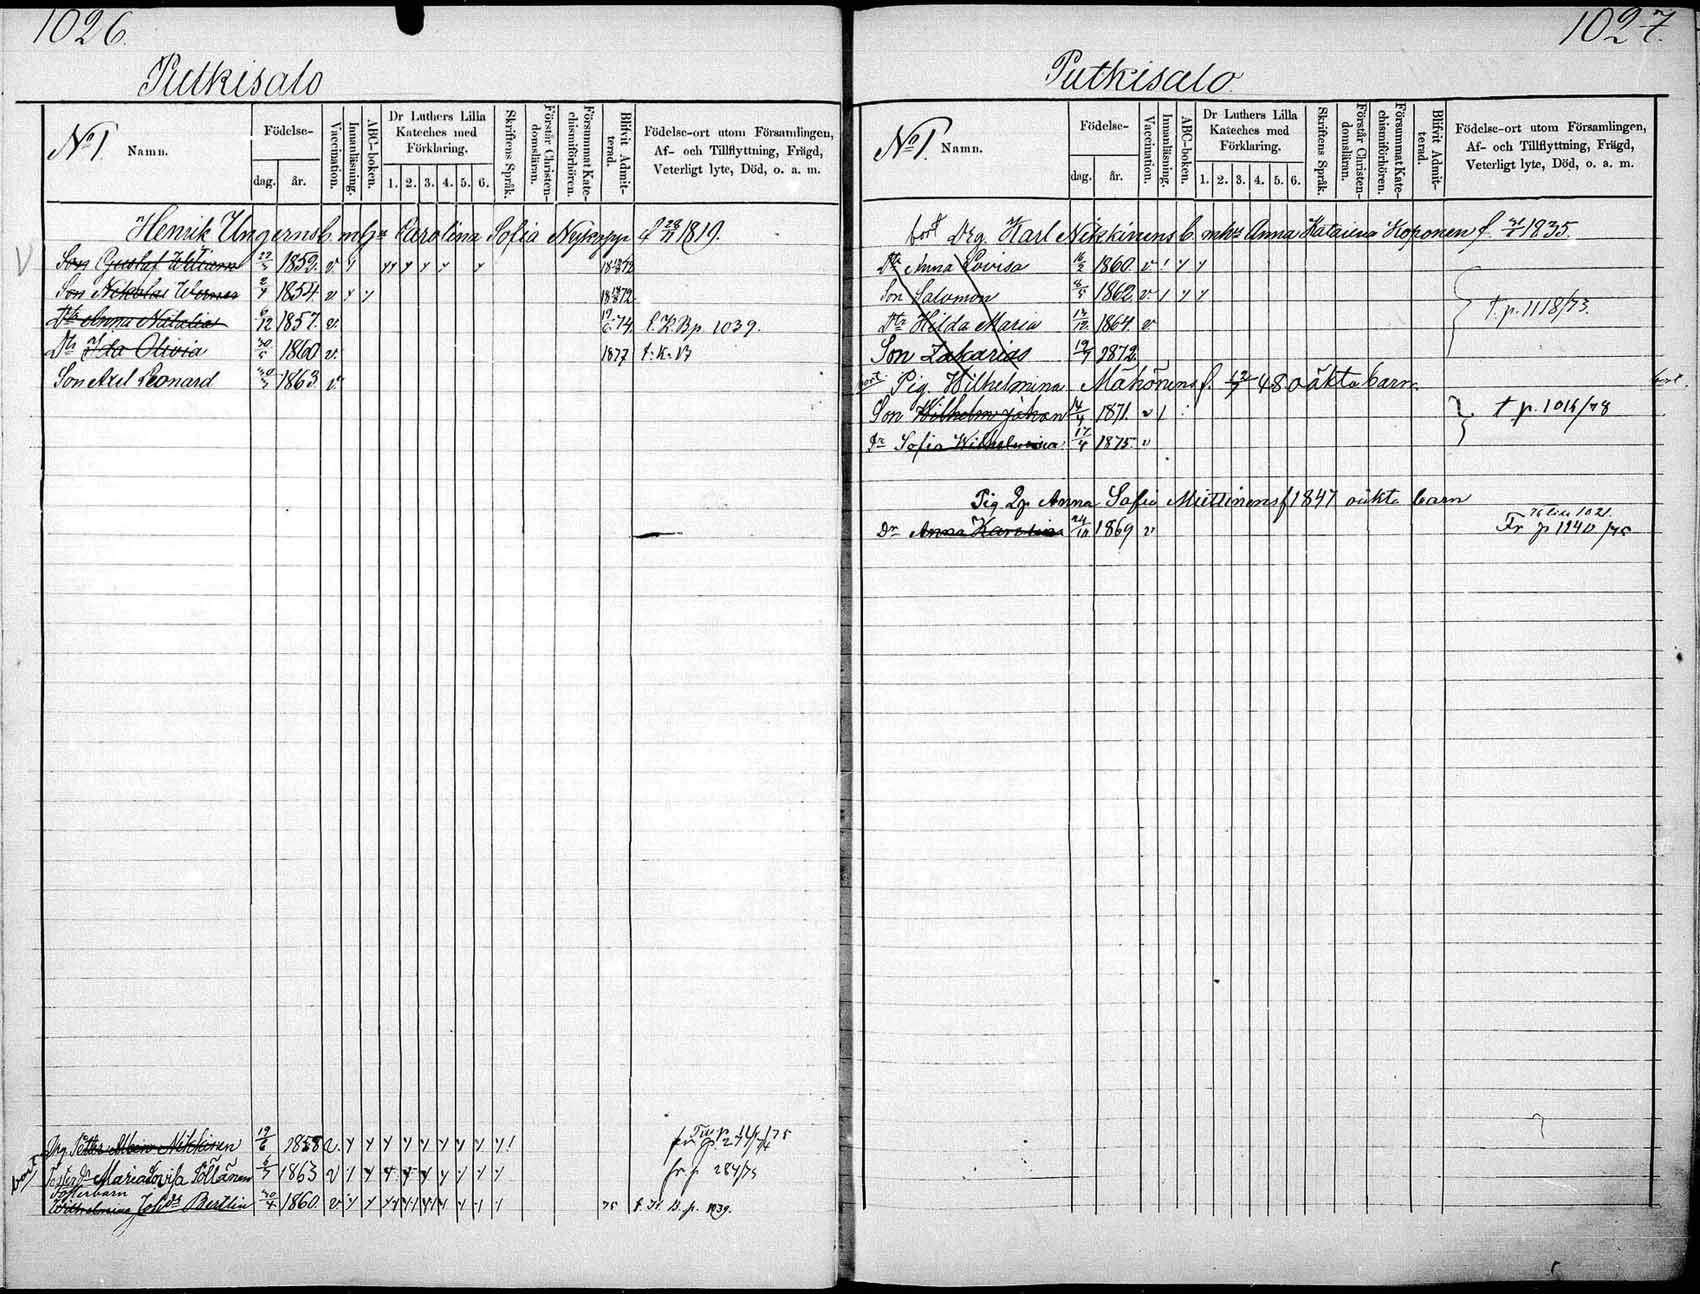 1026.
Putkisalo
No 1. Namn.
Födelse-
dag. år.
Vaccination.
Innanläsning.
ABC-boken.
Dr Luthers Lilla Kateches med Förklaring.
1. 2. 3. 4. 5. 6.
Skriftens Språk.
Förstår Christendomsläran.
Försummat Katechismiförhören.
Blifvit Admitterad.
Födelse-ort utom Församlingen, Af- och Tillflyttning, Frägd, Veterligt lyte, Död, o. a. m.
Henrik Ungerns b. m h Carolina Sofia f 1819.
Son Gustaf Wilhelm 1852. v
Son Nikolai Werner 2/4 1854 v 72
Dtr Anna Natalia 6/12 1857. v. 74. t. K. B. p. 1039.
Dtr Ida Olivia 30/5 1860 v. 1877 t. K. B
Son Axel Leonard 1863 v
Drg. Petter Albin Nikkinen 19/6 1858 v.
Maria Lovisa Pöllänen 6/7 1863 v fr p 284/75
Fosterbarn
Wilhelmina Berlin 30/4 1860. v. 75 t. K. B. p. 1039.
1027.
Putkisalo.
No 1. Namn.
Födelse-
dag. år.
Vaccination.
Innanläsning.
ABC-boken.
Dr Luthers Lilla Kateches med Förklaring.
1. 2. 3. 4. 5. 6.
Skriftens Språk.
Förstår Christendomsläran.
Försummat Katechismiförhören.
Blifvit Admitterad.
Födelse-ort utom Församlingen, Af- och Tillflyttning, Frägd, Veterligt lyte, Död, o. a. m.
bort Drg. Karl Nikkinens b. m h Anna Kataiena Koponen f. 1835.
Dtr Anna Lovisa 1860 v
Son Salomon 8/5 1862 v.
t. p. 1118/73.
Dtr Hilda Maria 1864 v
Son Zakarias 19/7 1872
bort Pig. Wilhelmina Mähönens f. 48 oäkta barn bort.
Son Wilhelm Johan 14/4 1871. v
t p. 1016/78
Dr Sofia Wilhelmina 17/4 1875 v
Pig Anna Sofia Miettinens f 1847 oäkta barn
Dr Anna Karolina 24/10 1869 v